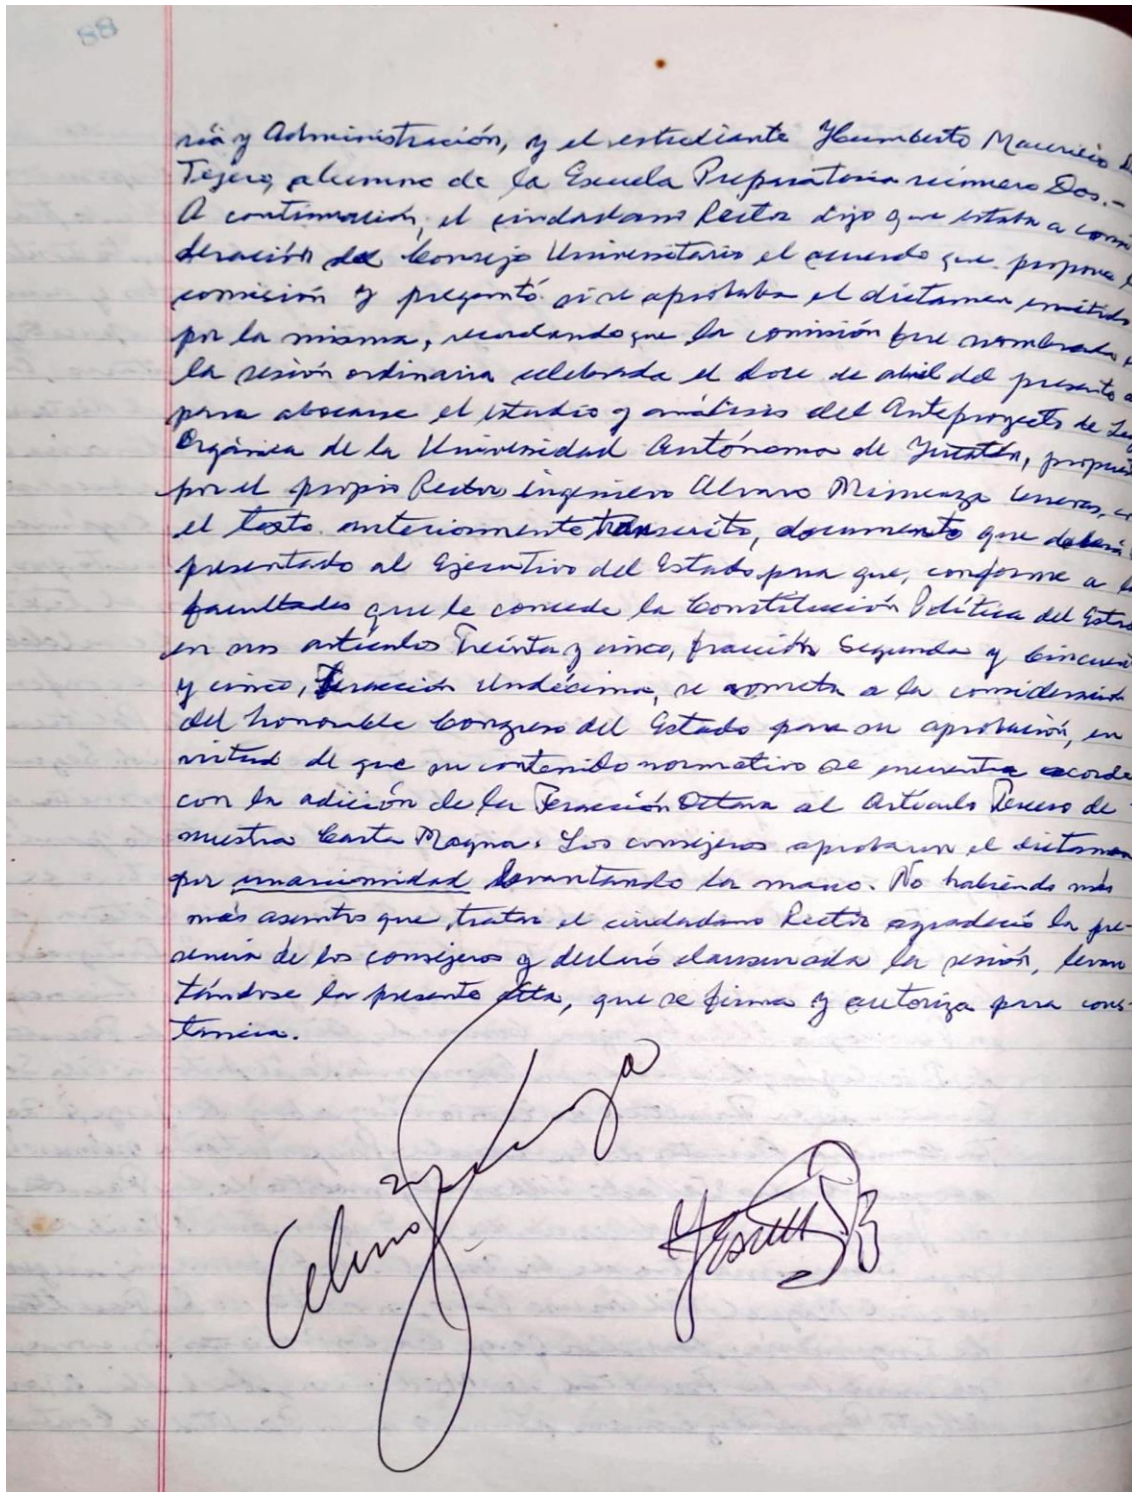 88
ría y Administración, y el estudiante Humberto Mauricio
Tejero, alumno de la Escuela Preparatoria número Dos.-
A continuación, el ciudadano Rector dijo que estaba a consi
deración del Consejo Universitario el acuerdo que propone
comisión y preguntó si se aprobaba el dictamen emitido
por la misma, recordando que la comisión fue nombrada
la sesión ordinaria celebrada el doce de abril del presente
para abocarse el estudio y análisis del Anteproyecto de Ley
Orgánica de la Universidad Autónoma de Yucatán,
por el propio Rector ingeniero Alvaro Mimenza
el texto anteriormente transcrito, documento que deberá
presentado al Ejecutivo del Estado para que, conforme a
facultades que le concede la Constitución Política del
en sus artículos Treinta y cinco, fracción Segunda y
y cinco, Fracción Undécima, se someta a la
del honorable Congreso del Estado para su aprobación, en
virtud de que su contenido normativo se encuentra acorde
con la adición de la Fracción Octava al Artículo Tercero de
nuestra Carta Magna. Los consejeros aprobaron el dictamen
por unanimidad levantando la mano. No habiendo más
más asuntos que tratar el ciudadano Rector agradeció la pre-
sencia de los consejeros y declaró clausurada la sesión, levan
tándose la presente acta, que se firma y autoriza para cons-
tancia.